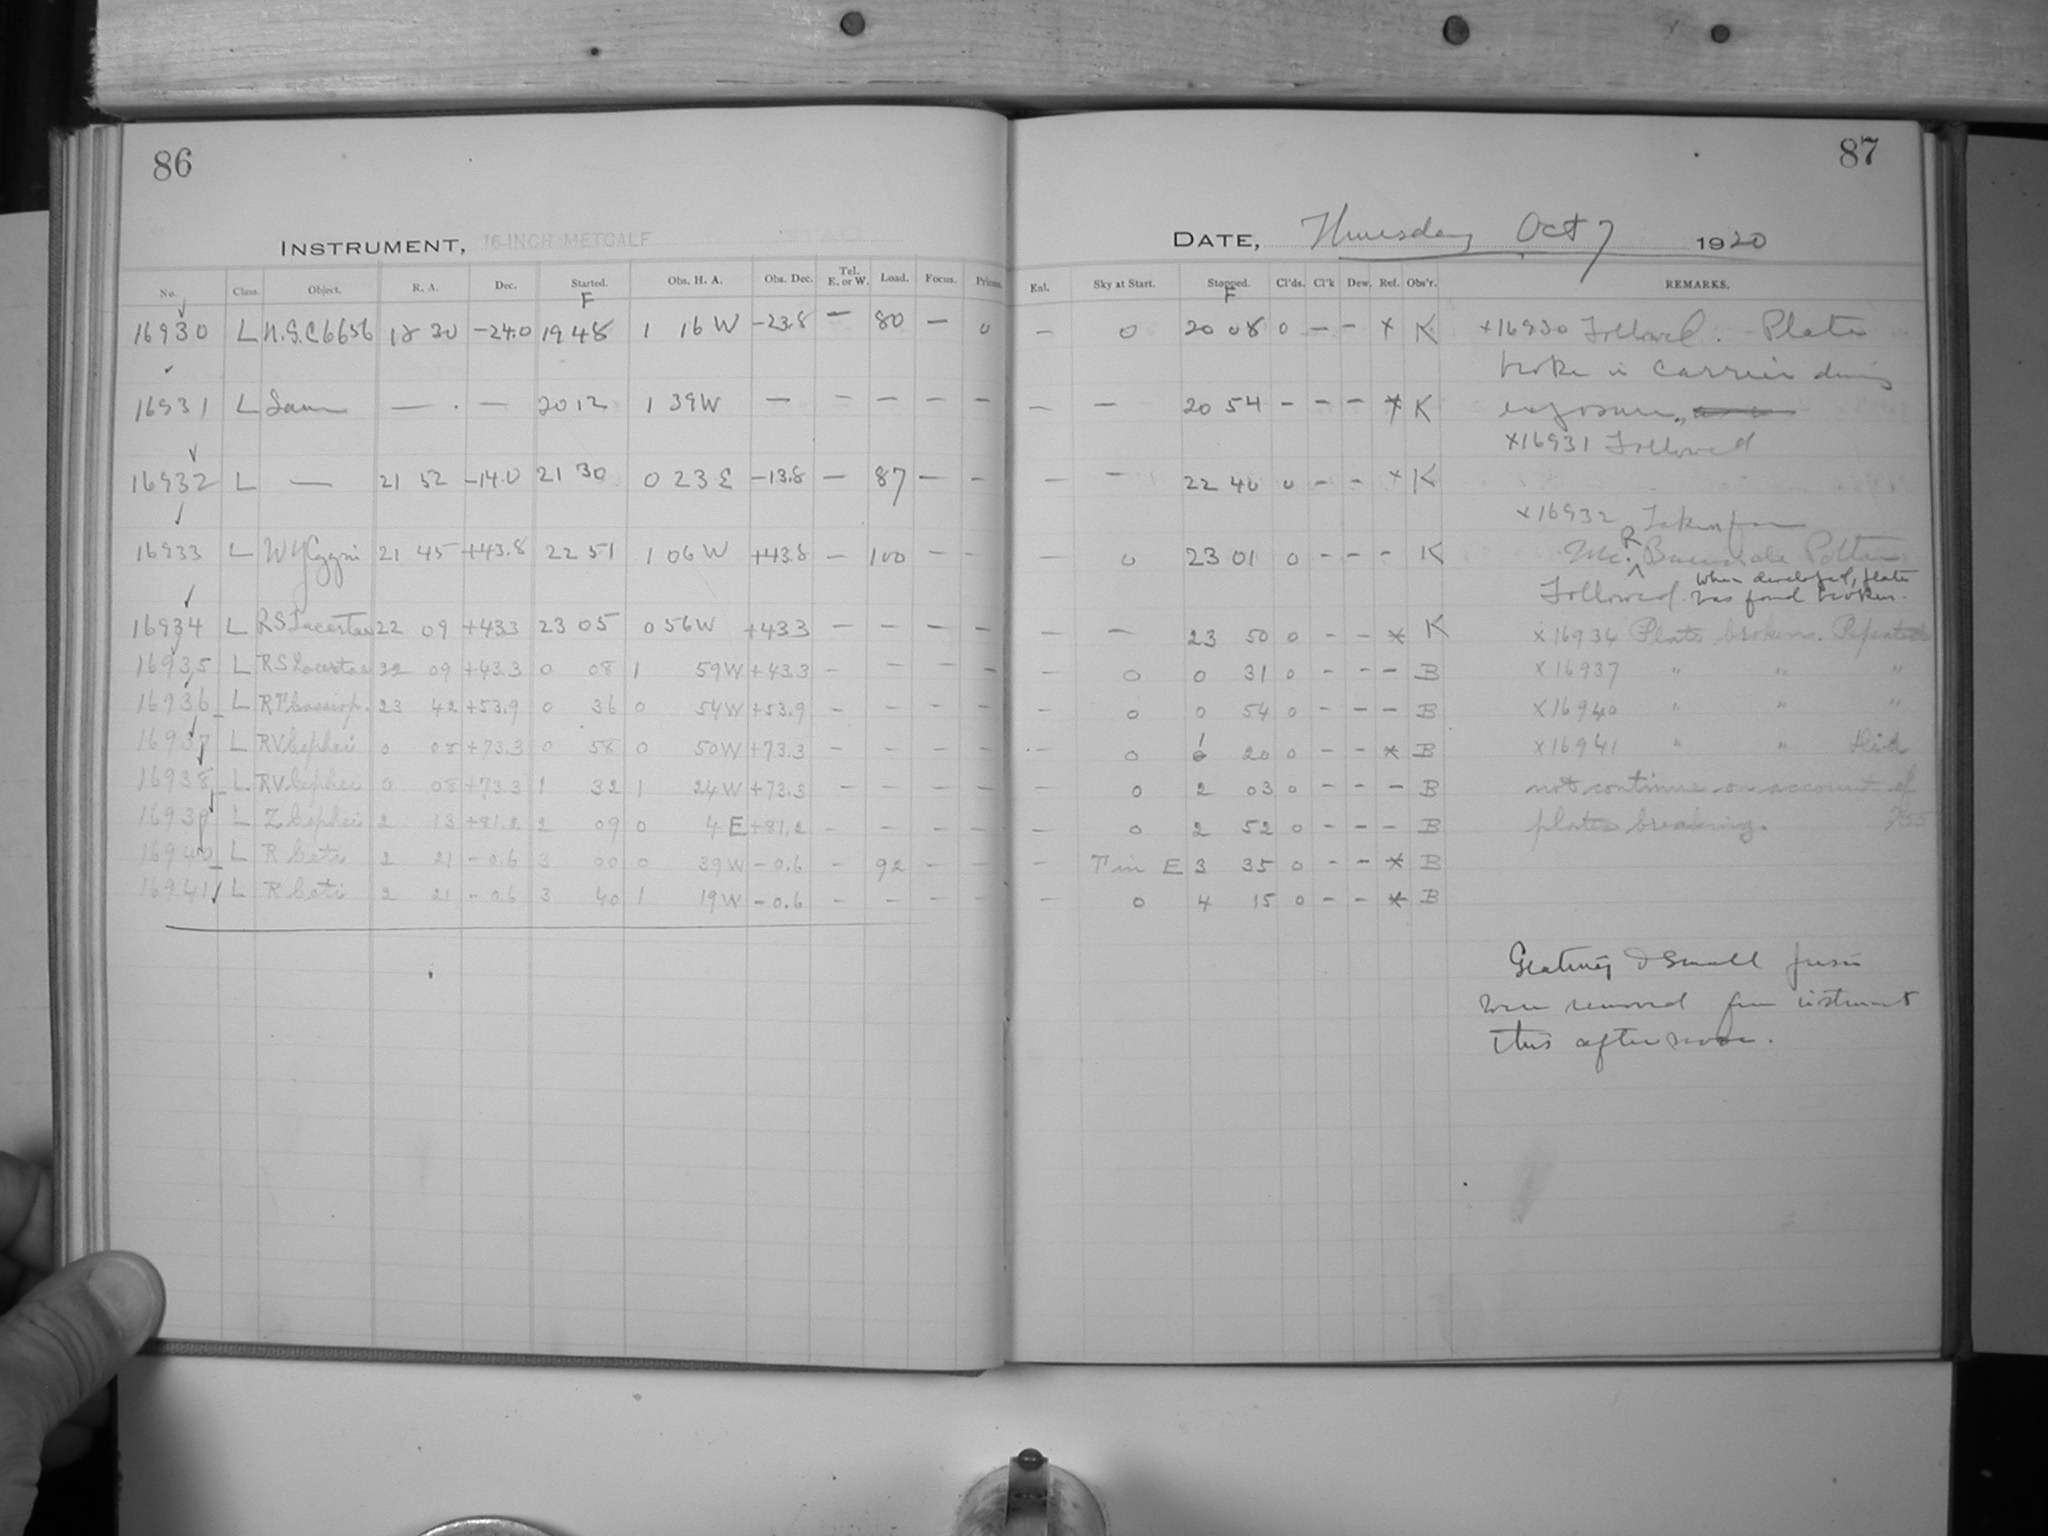 86
INSTRUMENT, 16-INCH METCALF
No. Class. Object. R. A. Dec. Started. Obs. H. A. Obs. Dec. Tel. E. or W. Load. Focus. Prisms.
F
16930 L N.G.C 6656 18 30 -24.0 19 48 1 16 W -23.8 - 80 - 0
16931 L Same — . — 20 12 1 39 W - - - - -
16932 L — 21 52 -14.0 21 30 0 23 E -13.8 - 87 - -
16933 L W Y Cygni 21 45 +43.8 22 51 1 06 W +43.8 - 100 - -
16934 L RS Lacertae 22 09 +433 23 05 0 56 W +433 - - - -
16935 L RS Lacertae 22 09 +43.3 0 08 1 59 W +43.3 - - - -
16936 L RT Cassiop. 23 42 +53.9 0 36 0 54 W +53.9 - - - -
16937 L RV Cephei 0 08 +73.3 0 58 0 50 W +73.3 - - - -
16938 L. RV Cephei 0 08 +73.3 1 32 1 24 W +73.3 - - - -
16939 L Z Cephei 2 13 +81.2 2 09 0 4 E +81.2 - - - -
16940 L R Ceti 2 21 -0.6 3 00 0 39 W -0.6 - 92 - -
16941 L R Ceti 2 21 -0.6 3 40 1 19 W -0.6 - - - -
87
DATE, Thursday Oct 7 1920
Enl. Sky at Start. Stopped. Cl'ds. Cl'k Dew. Ref. Obs'r. REMARKS.
F
- 0 20 08 0 - - x K x16930 Followed. Plate
broke in carrier during
- - 20 54 - - - x K exposure.
x16931 Followed
- - 22 40 0 - - x K
x16932 Taken for
- 0 23 01 0 - - - K Mr. R Potter
Followed. When developed, plate
was found broken.
- - 23 50 0 - - x K x16934 Plate broken. Repeated
- 0 0 31 0 - - - B x16937 " " "
- 0 0 54 0 - - - B x16940 " " "
- 0 1 20 0 - - x B x16941 " " Did
- 0 2 03 0 - - - B not continue on account of
- 0 2 52 0 - - - B plates breaking.
- T in E 3 35 0 - - x B
- 0 4 15 0 - - x B
Grating & Small prism
were removed from instrument
this afternoon.